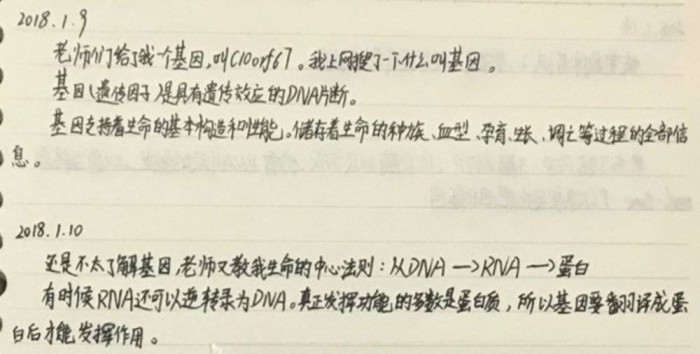 2018.1.9
老师们给了我一个基因,叫C10orf67。我上网搜了一下什么叫基因。
基因(遗传因子)是具有遗传效应的DNA片断。
基因支持着生命的基本构造和性能。储存着生命的种族、血型、孕育、生长、凋亡等过程的全部信
息。
2018.1.10
还是不太了解基因,老师又教我生命的中心法则:从DNA→RNA→蛋白
有时候RNA还可以逆转录为DNA。真正发挥功能的多数是蛋白质,所以基因要翻译成蛋
白后才能发挥作用。